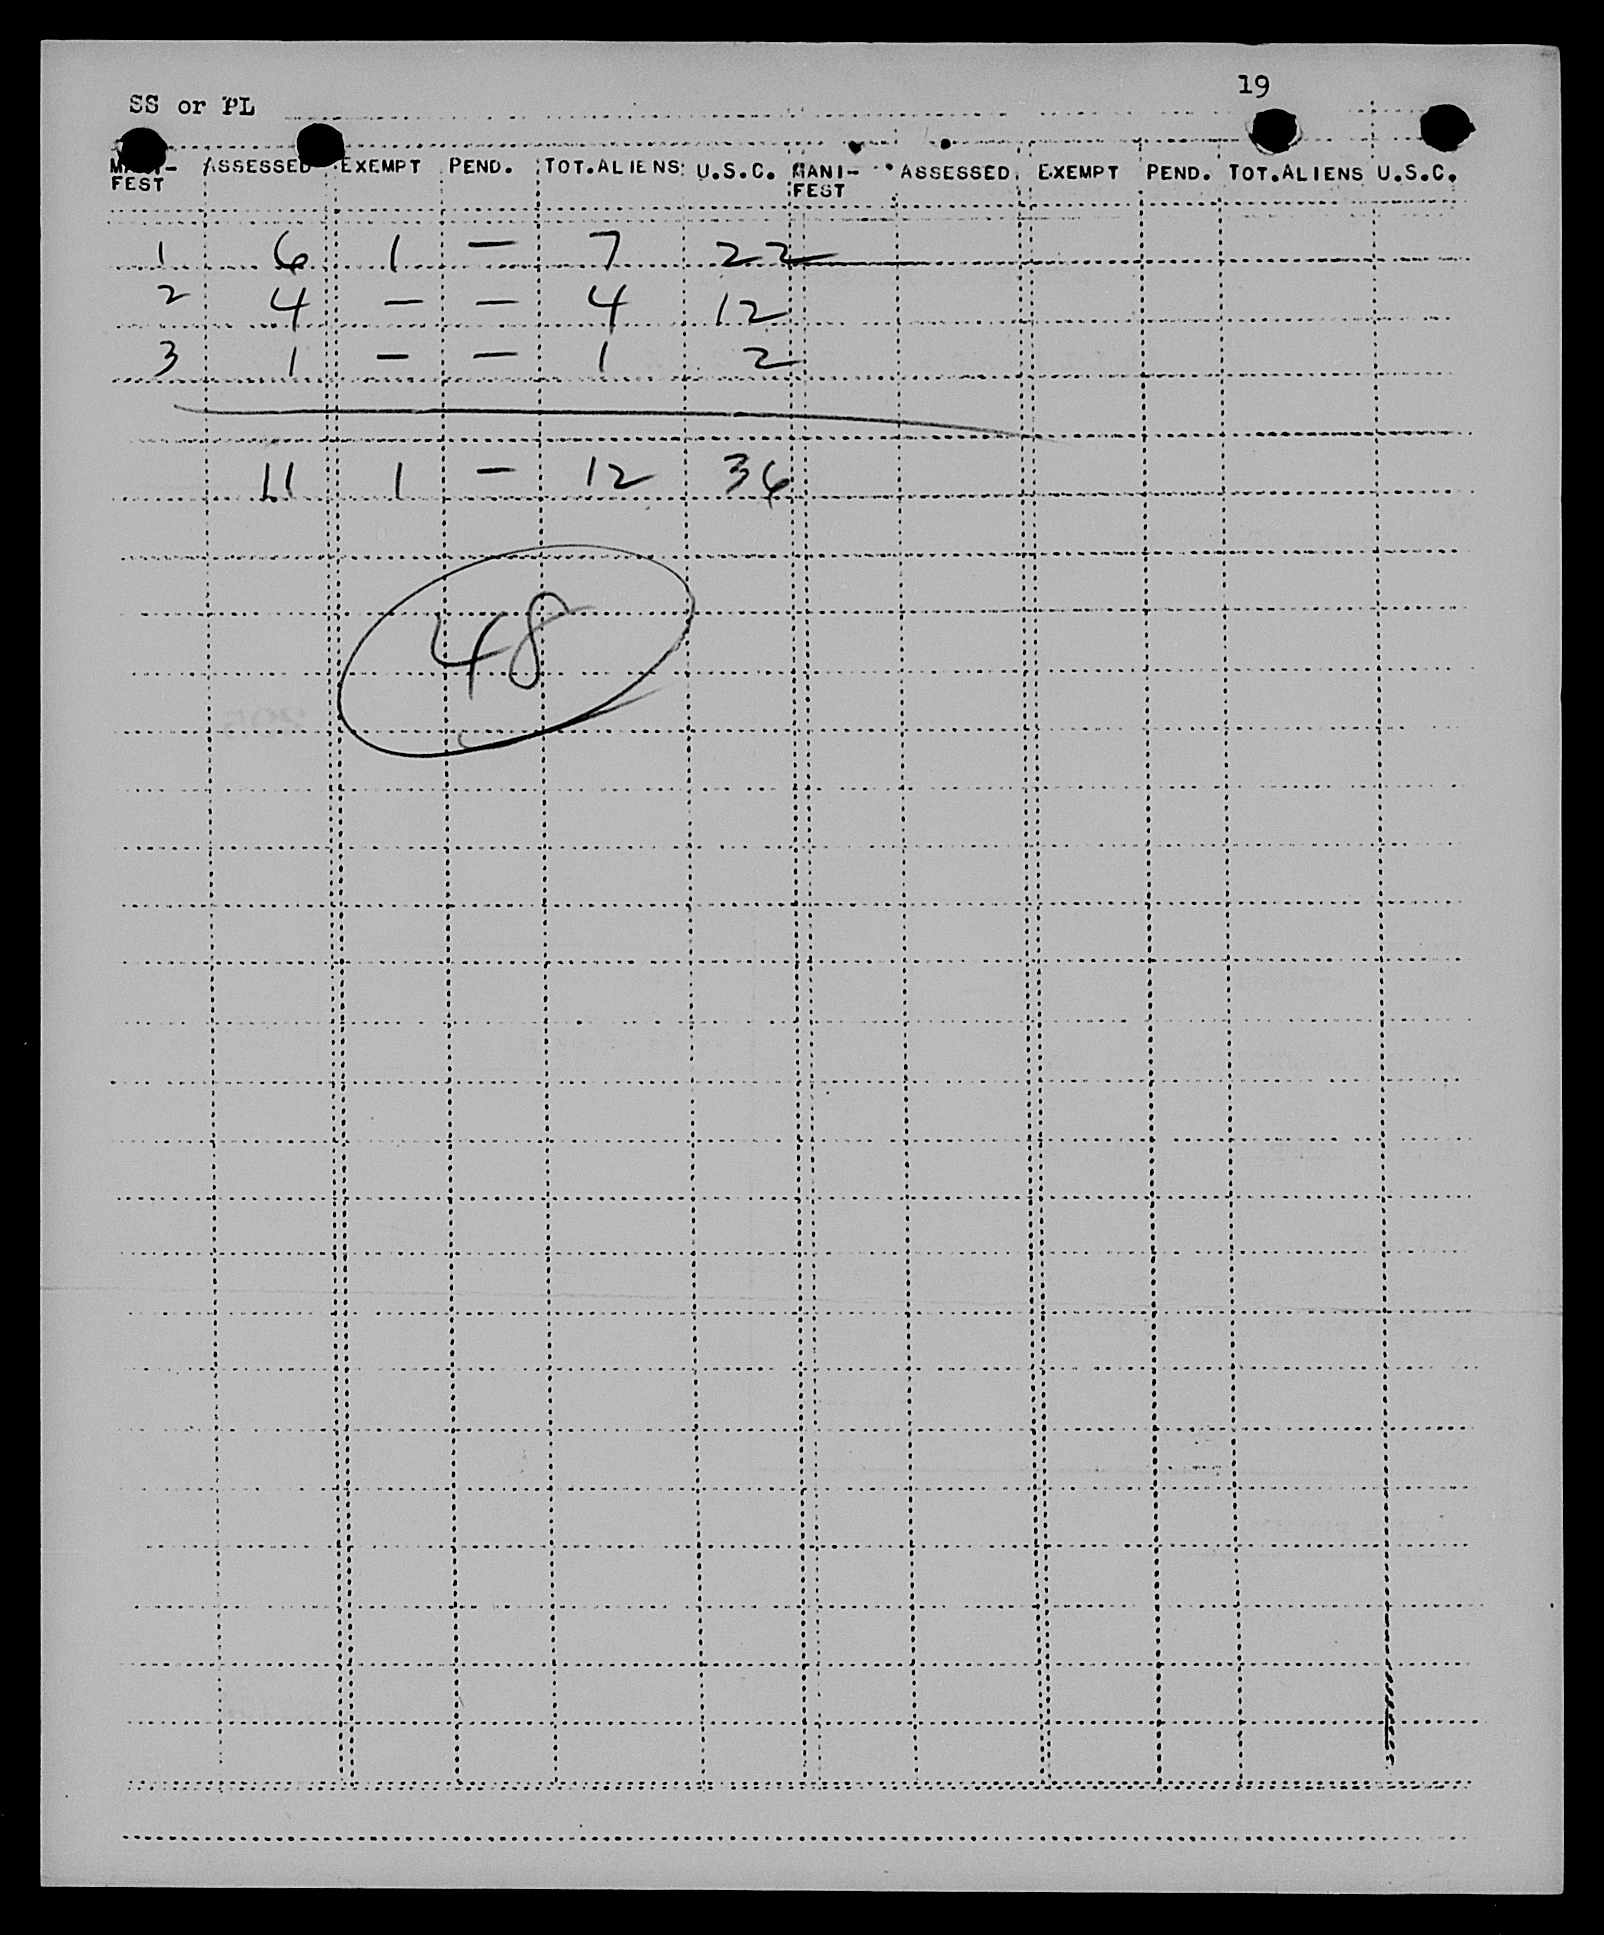 19
SS or PL
MANI- ASSESSED EXEMPT PEND. TOT.ALIENS U.S.C. MANI- ASSESSED EXEMPT PEND. TOT.ALIENS U.S.C.
FEST FEST
1 6 1 — 7 22
2 4 — — 4 12
3 1 — — 1 2
11 1 — 12 36
48